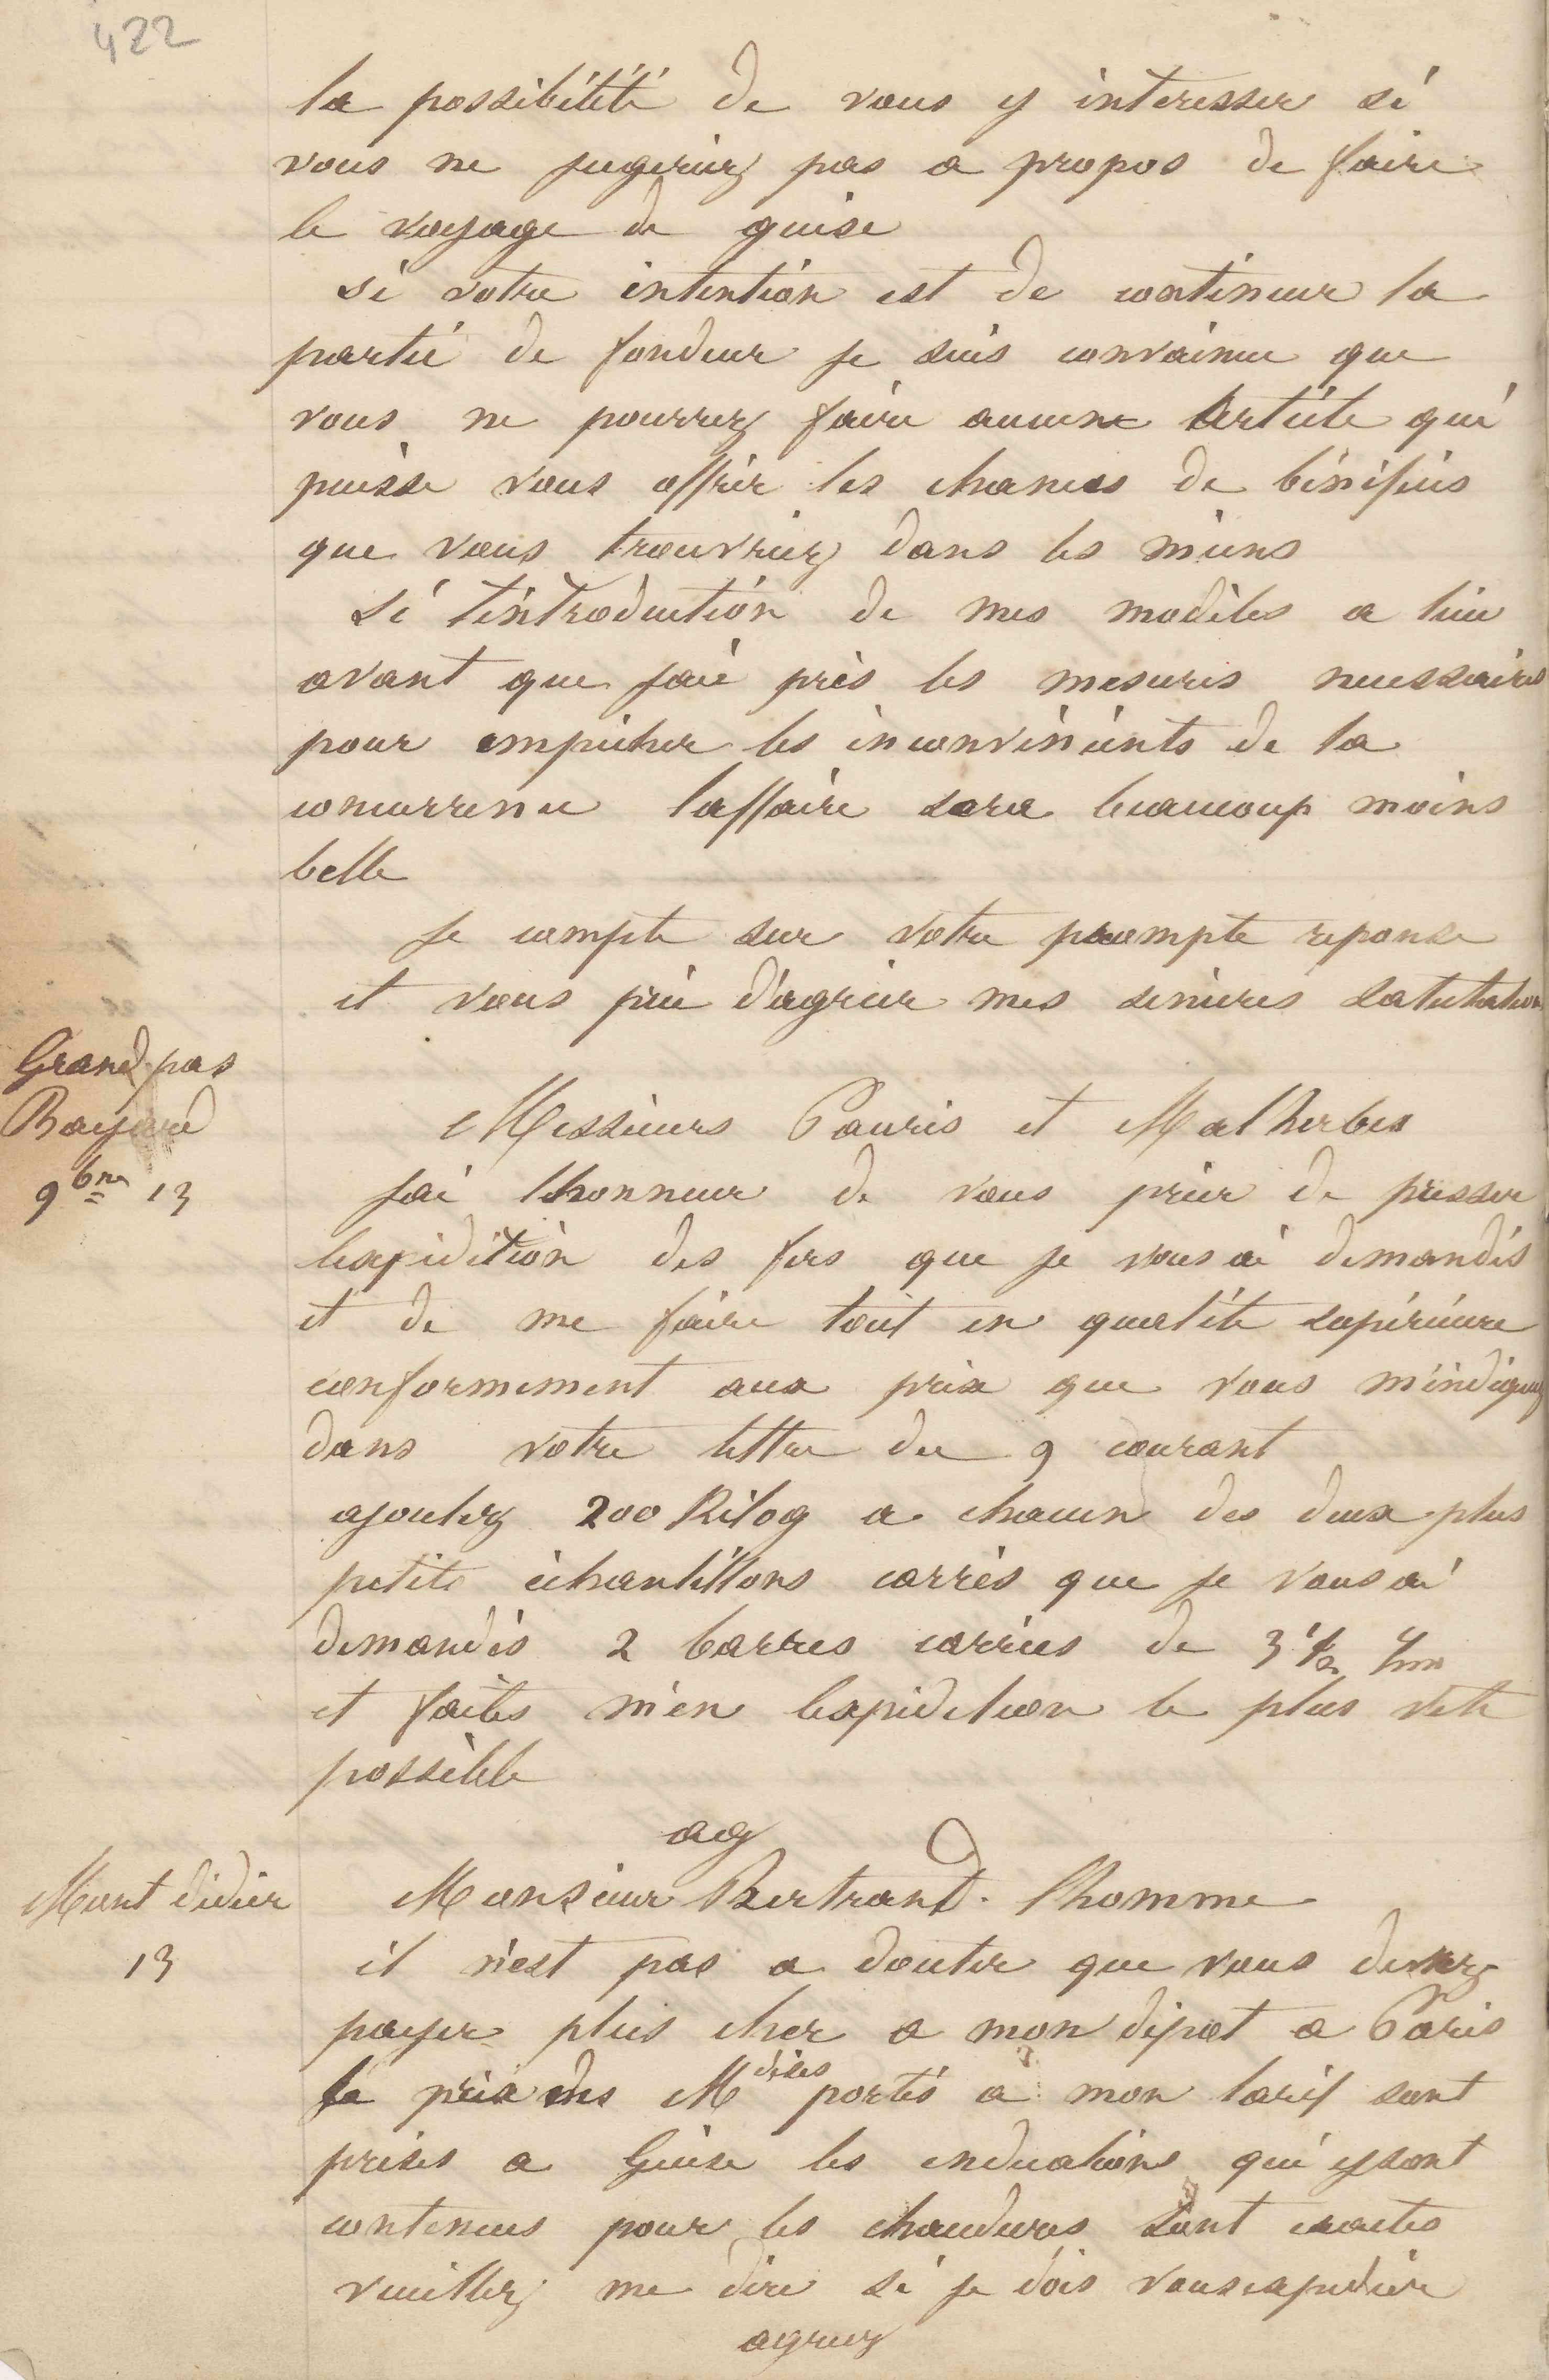 422
la possibilité de vous y interesser si
vous ne jugeriez pas a propos de faire
le voyage de guise
si votre intention est de continuer la
partie de fondeur je suis convaincu que
vous ne pourrez faire aucune article qui
puisse vous offrir les chances de bénéfices
que vous trouvriez dans les miens
si l'introduction de mes modèles a lieu
avant que j'aie pris les mesures necessaires
pour empêcher les inconvénients de la
concurrence l'affaire sera beaucoup moins
belle
je compte sur votre prompte reponse
et vous prie d'agréer mes sincères salutations
Grand pas
Bayard
9bre 13
Messieurs Pauris et Malherbes
j'ai l'honneur de vous prier de presser
lexpédition des fers que je vous ai demandés
et de me faire tout en qualité supérieure
conformement aux prix que vous m'indiquez
dans votre lettre du 9 courant
ajoutez 200 Kilog a chacun des deux plus
petits échantillons carrés que je vous ai
demandés 2 barres carrées de 3 1/2
et faites m'en lexpedition le plus vite
possible
ag
Mont didier
13
Monsieur Bertrand-lhomme
il n'est pas a douter que vous devez
payer plus cher a mon dépot a Paris
le prix des Mdises portés a mon tarif sont
prises a Guise les indications qui y sont
contenues pour les chaudieres sont exactes
veuillez me dire si je dois vous expedier
agreez